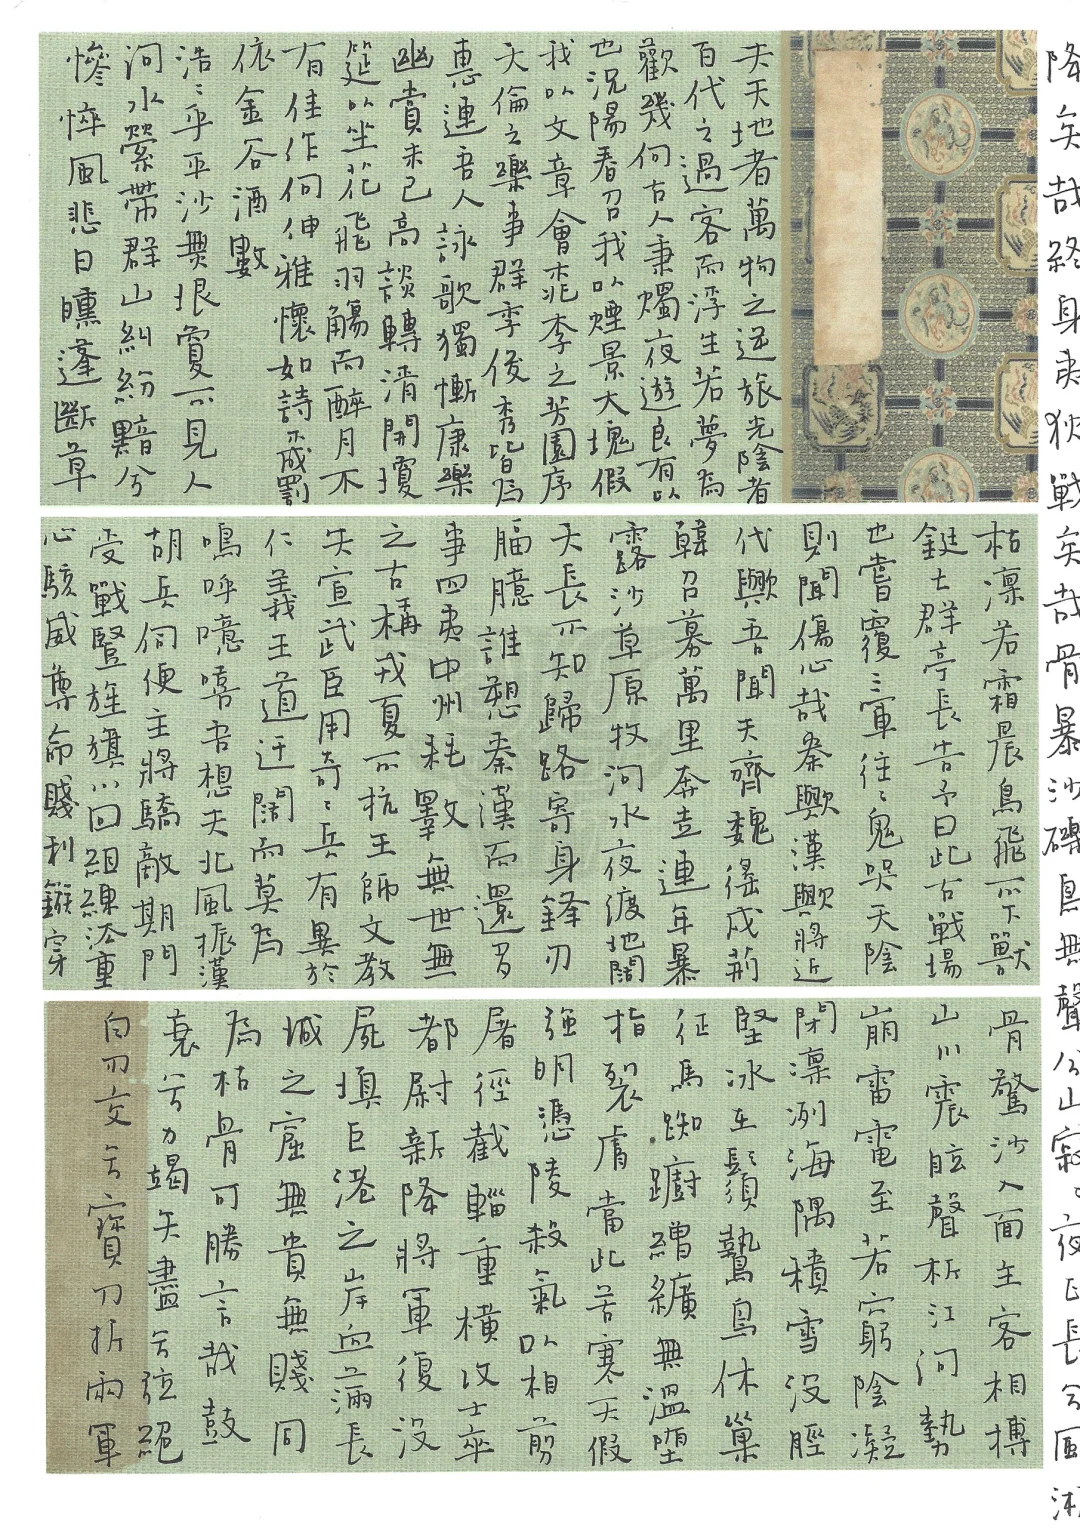 夫天地者萬物之逆旅光陰者
百代之過客而浮生若夢為
歡幾何古人秉燭夜遊良有以
也況陽春召我以煙景大塊假
我以文章會桃李之芳園序
天倫之樂事群季俊秀皆為
惠連吾人詠歌獨慚康樂
幽賞未已高談轉清開瓊
筵以坐花飛羽觴而醉月不
有佳作何伸雅懷如詩不成罰
依金谷酒數
浩〻乎平沙無垠敻不見人
河水縈帶群山糾紛黯兮
慘悴風悲日曛蓬斷草
枯凜若霜晨鳥飛不下獸
鋌亡群亭長告予曰此古戰場
也嘗覆三軍往〻鬼哭天陰
則聞傷心哉秦歟漢歟將近
代歟吾聞夫齊魏徭戍荊
韓召募萬里奔走連年暴
露沙草原牧河水夜渡地闊
天長不知歸路寄身鋒刃
腷臆誰愬秦漢而還多
事四夷中州耗斁無世無
之古稱戎夏不抗王師文教
失宣武臣用奇〻兵有異於
仁義王道迂闊而莫為
嗚呼噫嘻吾想夫北風振漢
胡兵伺便主將驕敵期門
受戰豎旌旗川回組練法重
心駭威尊命賤利鏃穿
骨驚沙入面主客相搏
山川震眩聲析江河勢
崩雷電至若窮陰凝
閉凜冽海隅積雪沒脛
堅冰在鬚鷙鳥休巢
征馬踟躕繒纊無溫墮
指裂膚當此苦寒天假
強明憑陵殺氣以相剪
屠徑截輜重橫攻士卒
都尉新降將軍復沒
屍填巨港之岸血滿長
城之窟無貴無賤同
為枯骨可勝言哉鼓
衰兮力竭矢盡兮弦絕
白刃交兮寶刀折兩軍
降矣哉終身夷狄戰矣哉骨暴沙礫鳥無聲兮山寂〻夜正長兮風淅